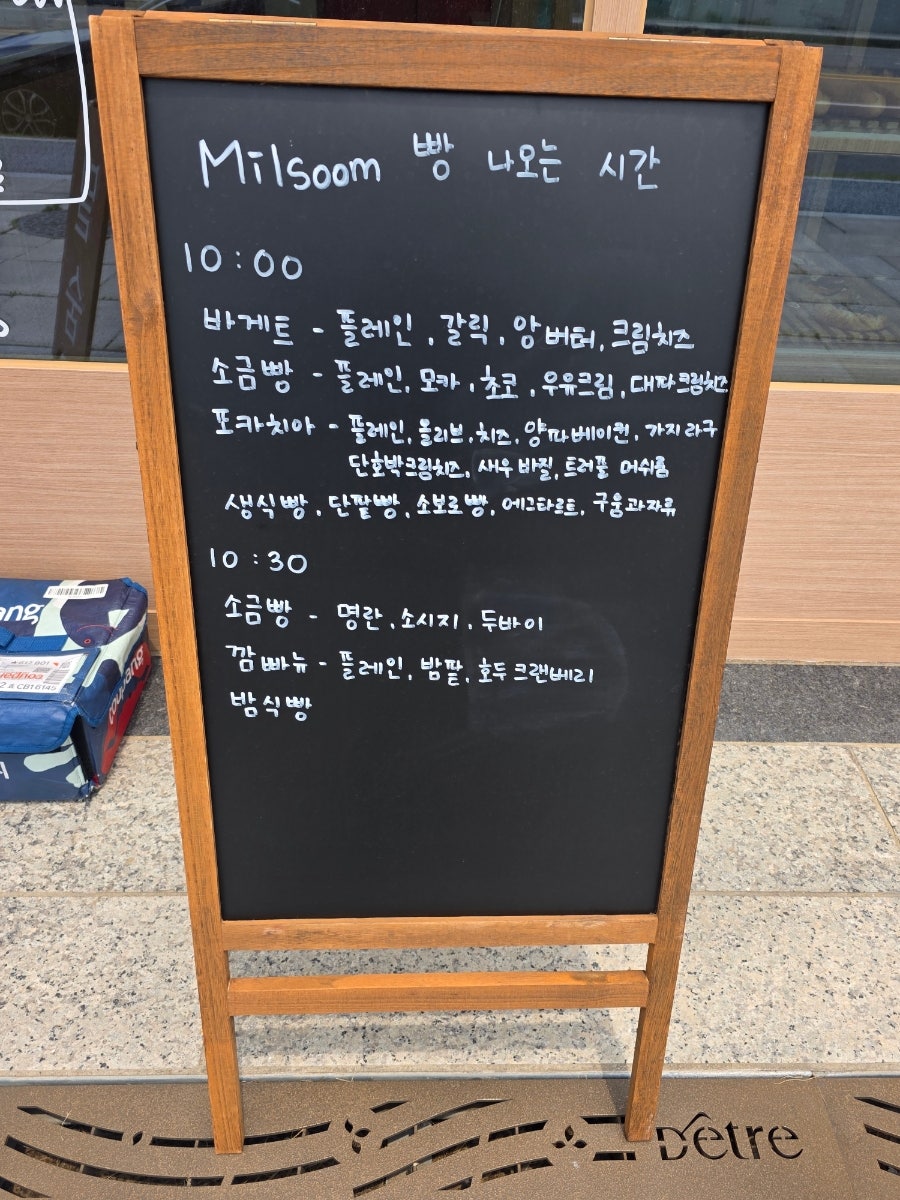 Milsoom 빵 나오는 시간
10:00
바게트 - 플레인, 갈릭, 앙버터, 크림치즈
소금빵 - 플레인, 모카, 초코, 우유크림, 대파크림치즈
포카치아 - 플레인, 올리브, 치즈, 양파베이컨, 가지라구
단호박크림치즈, 새우바질, 트러플 머쉬룸
생식빵, 단팥빵, 소보로빵, 에그타르트, 구움과자류
10:30
소금빵 - 명란, 소시지, 두바이
깜빠뉴 - 플레인, 밤팥, 호두크랜베리
밤식빵
Dêtre